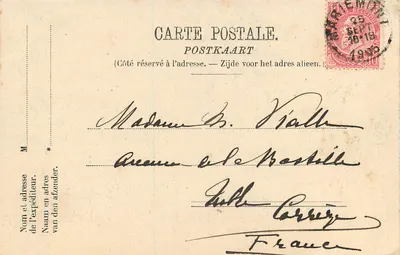 CARTE POSTALE.
POSTKAART
(Côté réservé à l'adresse. — Zijde voor het adres alleen.)
25
SEPT
1905
Madame M. Vialle
Avenue de la Bastille
Tulle
Corrèze
France
M
Nom et adresse
de l'expéditeur.
Naam en adres
van den afzender.